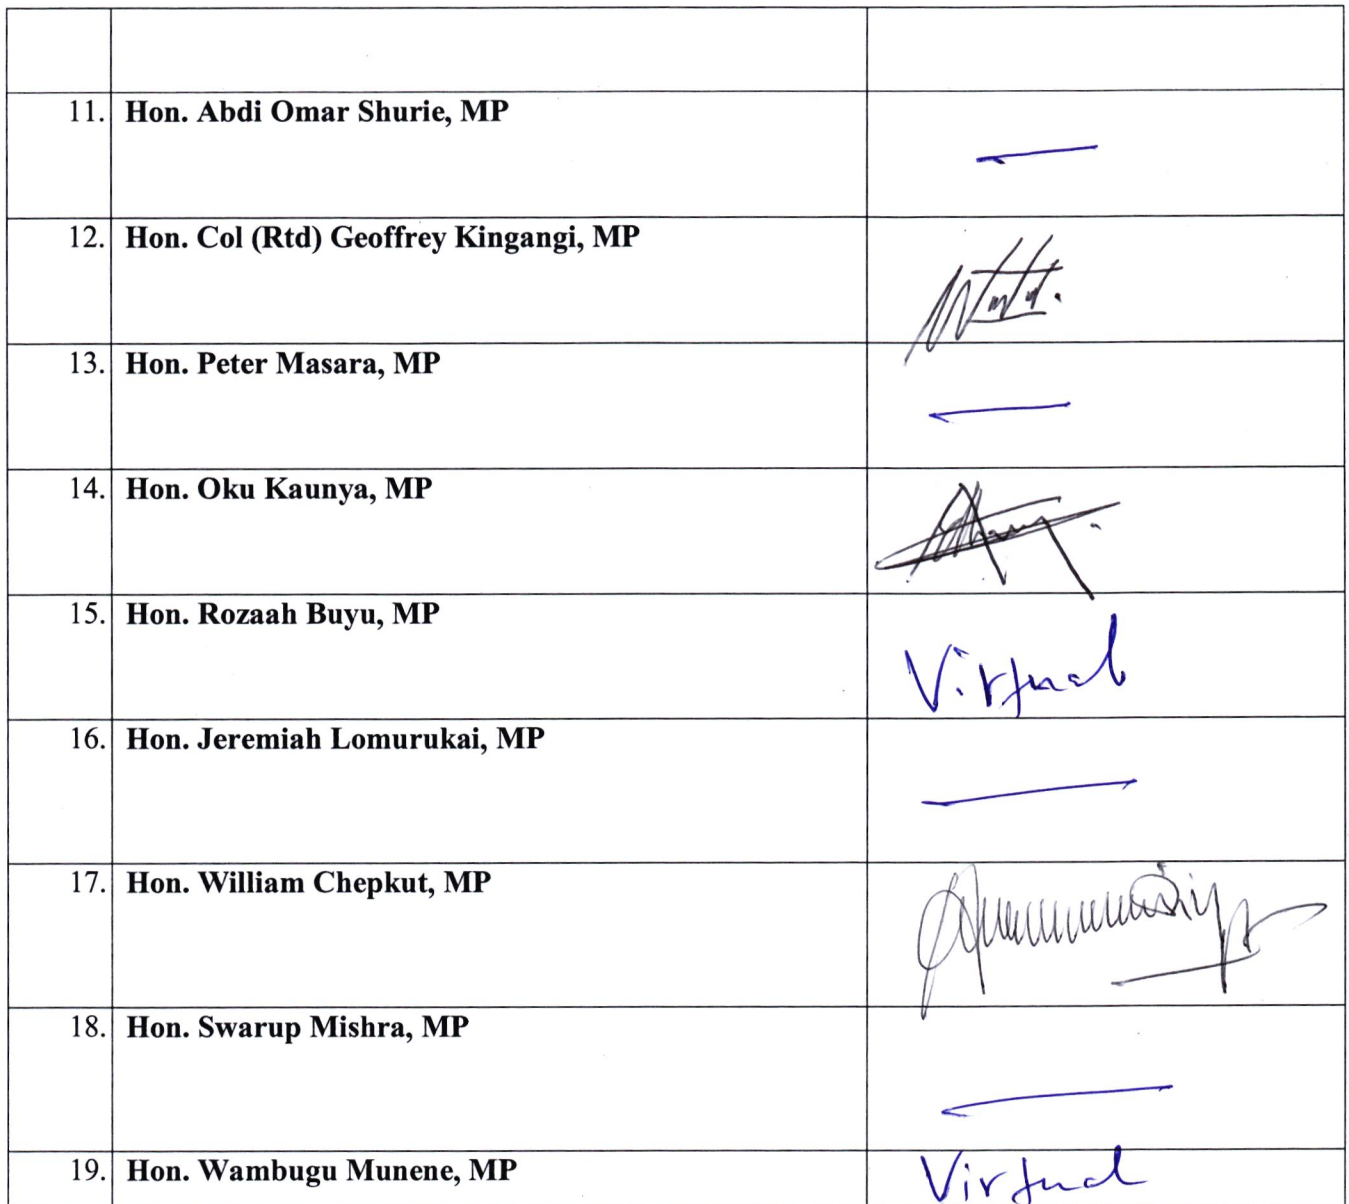 11. Hon. Abdi Omar Shurie, MP
12. Hon. Col (Rtd) Geoffrey Kingangi, MP
13. Hon. Peter Masara, MP
14. Hon. Oku Kaunya, MP
15. Hon. Rozaah Buyu, MP
Virtual
16. Hon. Jeremiah Lomurukai, MP
17. Hon. William Chepkut, MP
18. Hon. Swarup Mishra, MP
19. Hon. Wambugu Munene, MP Virtual